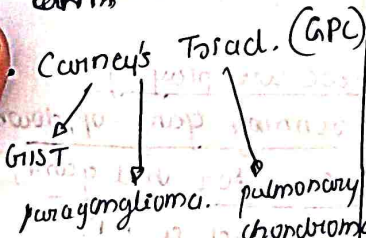 Carney's Triad. (GPC)
GIST
paraganglioma.
pulmonary
chondroma